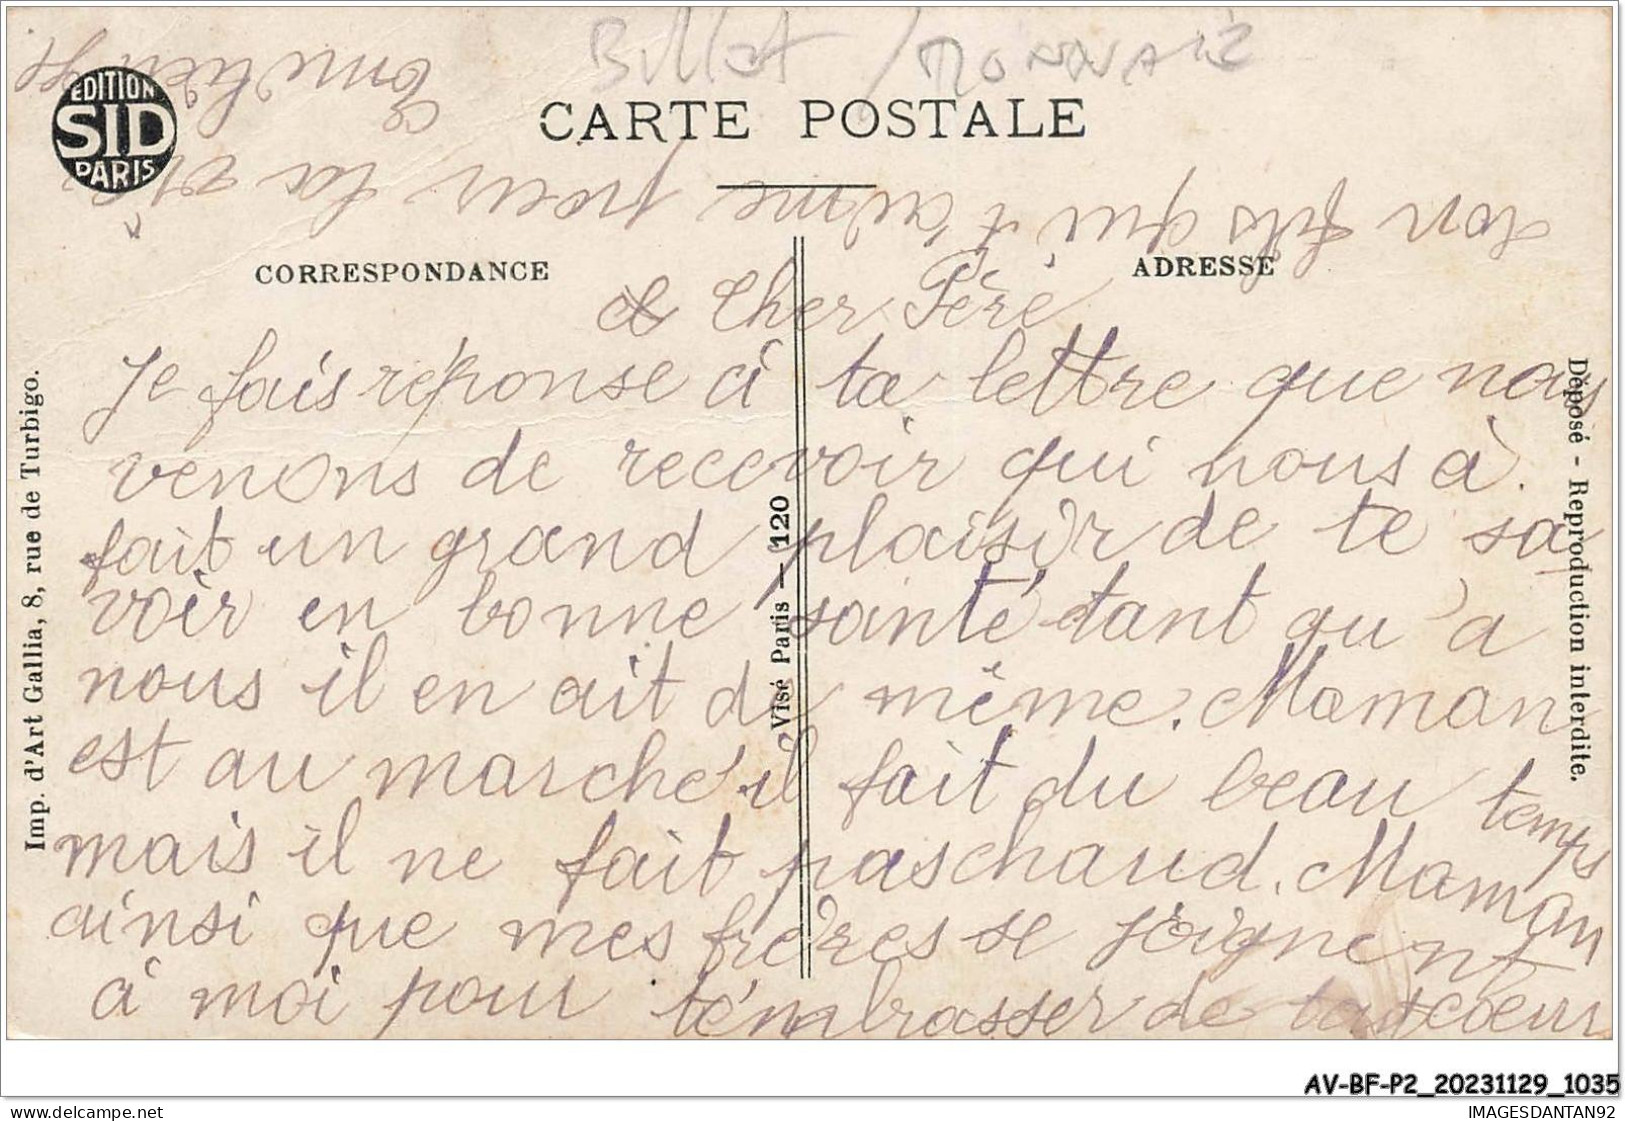 Billet / MONNAIE
EDITION
SID
PARIS
CARTE POSTALE
CORRESPONDANCE
ADRESSE
Cher Père
Je fais réponse à ta lettre que nous
venons de recevoir qui nous à
fait un grand plaisir de te sa
voir en bonne santé tant qu'a
nous il en ait de même. Maman
est au marché il fait du beau temps
mais il ne fait pas chaud. Maman
ainsi que mes frères se joignent
à moi pour t'émbrasser de tout coeur
ton fils qui t'aime pour la vie
Imp. d'Art Gallia, 8, rue de Turbigo.
Visé Paris — 120
Déposé - Reproduction interdite.
AV-BF-P2_20231129_1035
www.delcampe.net
IMAGESDANTAN92